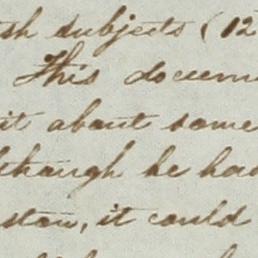 sh subjects (12
This docum
it about some
lthough he had
stow, it could